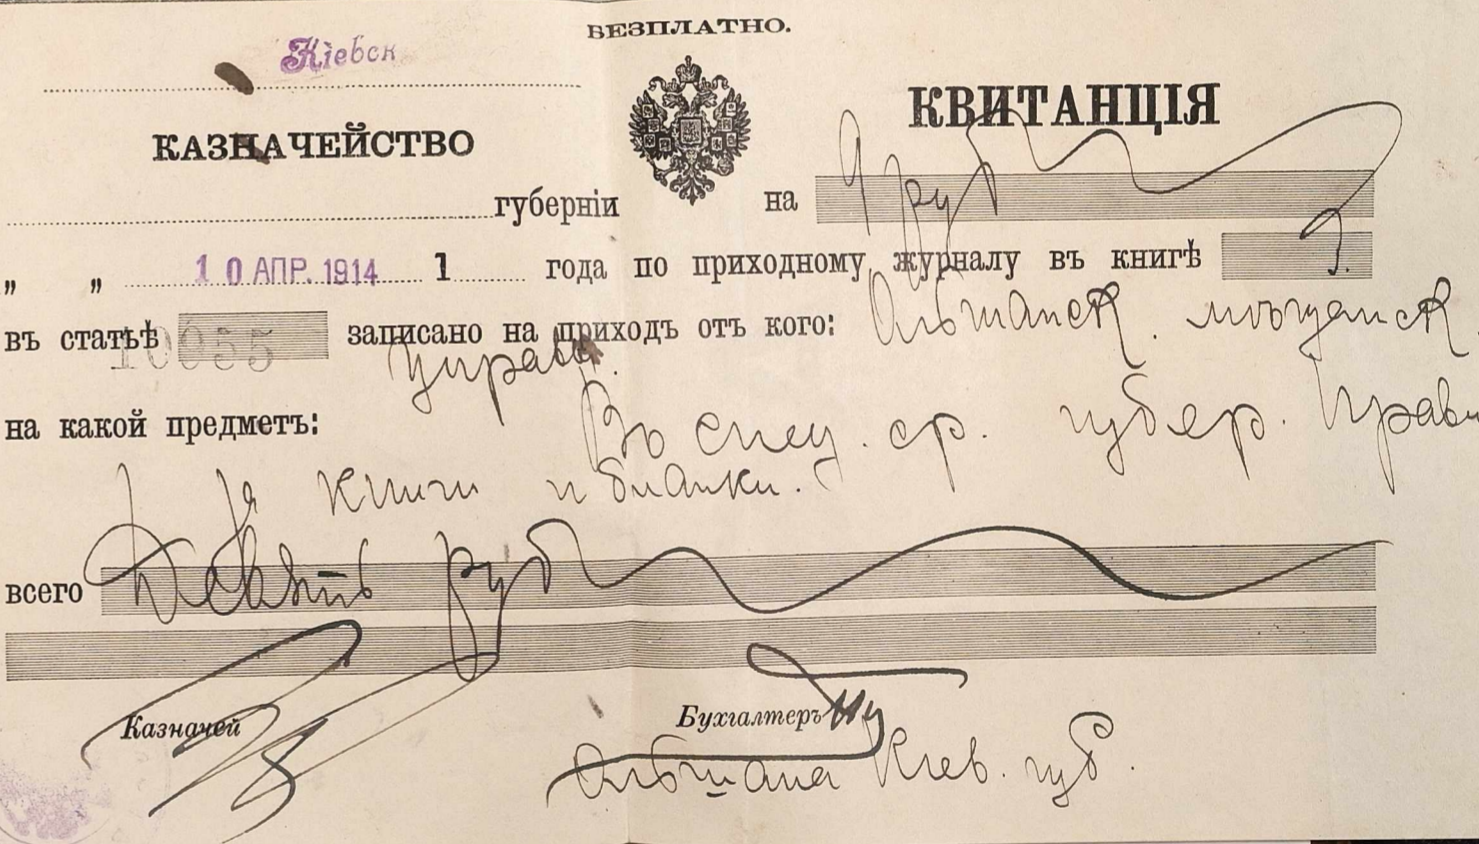 БЕЗПЛАТНО.
Кіевск
КАЗНАЧЕЙСТВО
КВИТАНЦІЯ
губерніи
на 9 руб
" " 10 АПР. 1914 1 года по приходному журналу въ книгѣ
въ статьѣ 10055 записано на приходъ отъ кого: Ольшанск. мѣщанск
управ.
на какой предметъ: Въ спец. ср. губер. Правл
за книги и бланки.
всего Девять руб
Казначей
Бухгалтеръ
Ольшана Кіев. губ.